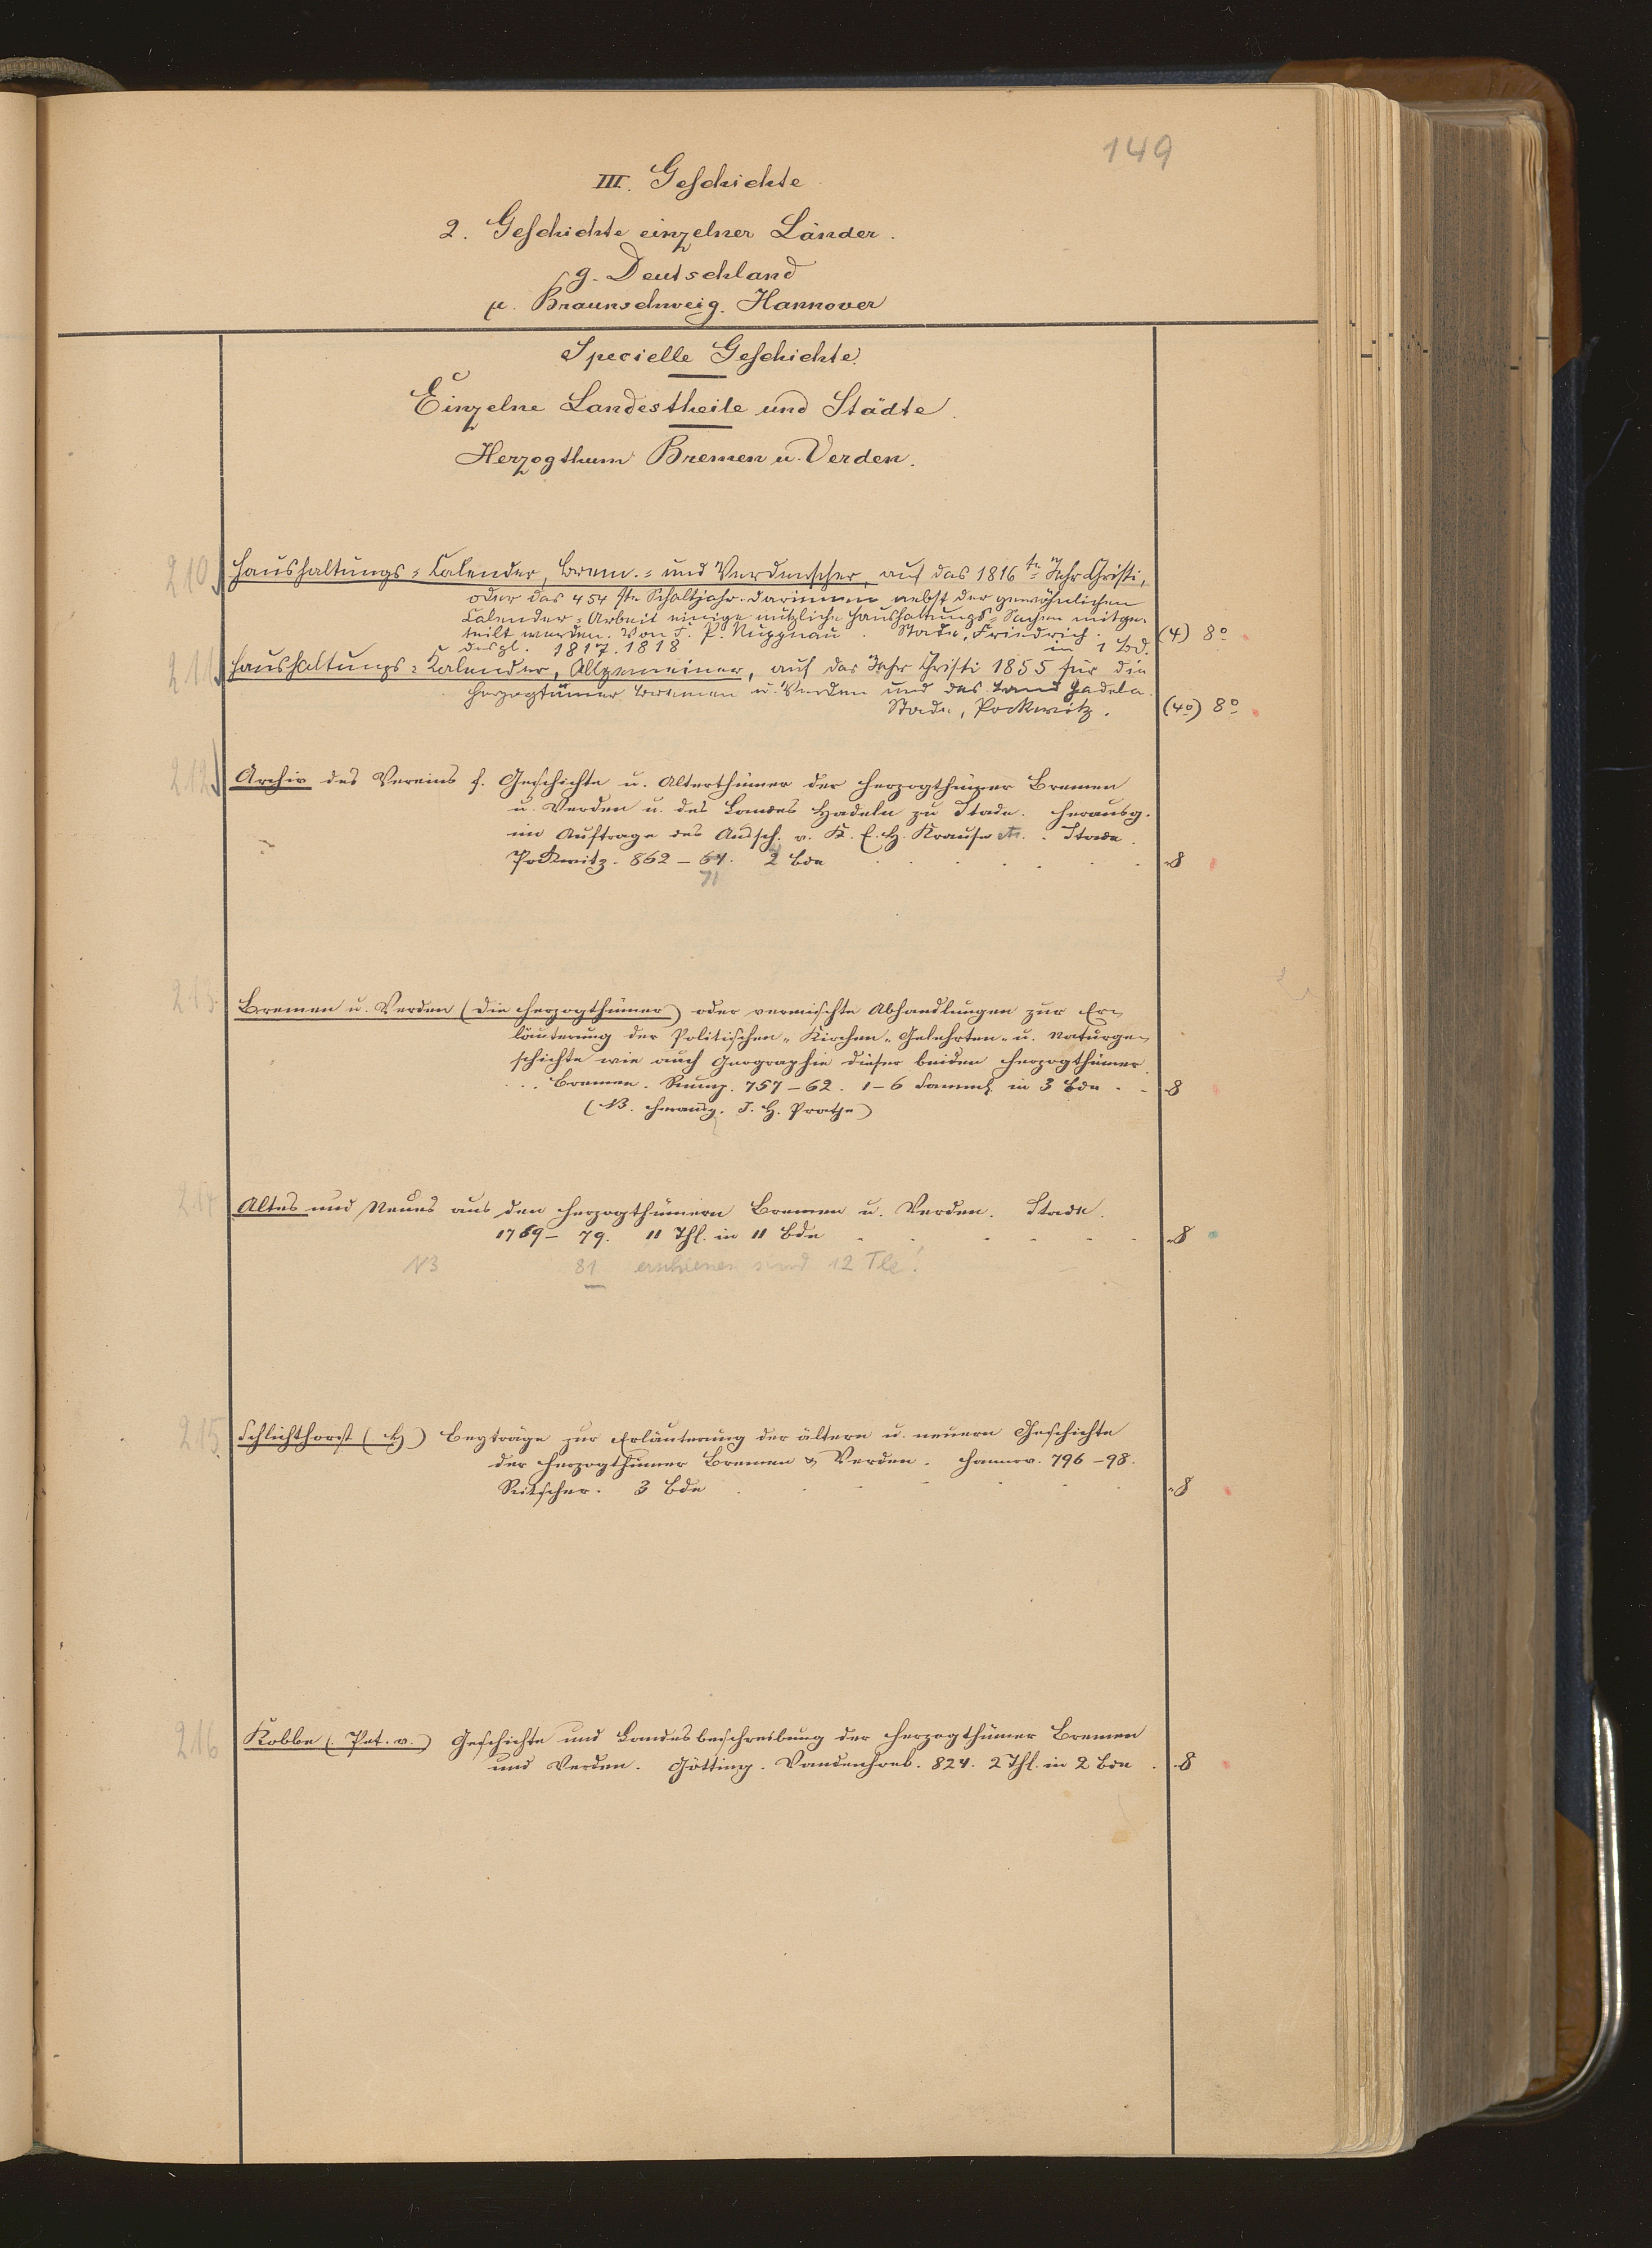 149
III. Geschichte
2. Geschichte einzelner Länder.
g. Deutschland
μ. Braunschweig. Hannover
Specielle Geschichte
Einzelne Landestheile und Städte.
Herzogthum Bremen u. Verden.
210 Haushaltungs=Calender, Brem.= und Verdenscher, auf das 1816te Jahr Christi,
oder das 454ste Schaltjahr. Darinnen nebst der gewöhnlichen
Calender=Arbeit einige nützliche Haushaltungs=Sachen mitge-
teilt werden. Von J. P. Stade, Friedrich. (4) 8o
desgl. 1817. 1818 in 1 Bd.
211 Haushaltungs=Kalender, Allgemeiner, auf das Jahr Christi 1855 für die
Herzogtümer Bremen u. Verden und das Land Hadeln.
Stade, Pockwitz. (4o) 8o
212 Archiv des Vereins f. Geschichte u. Alterthümer der Herzogthümer Bremen
u. Verden u. des Landes Hadeln zu Stade. Herausg.
im Auftrage des Aussch. v. K. E. H. Krause etc. Stade.
Pockwitz. 862–64. 2 Bde 8
71
213. Bremen u. Verden (Die Herzogthümer) oder vermischte Abhandlungen zur Er-
läuterung der Politischen- Kirchen- Gelehrten- u. Naturge-
schichte wie auch Geographie dieser beiden Herzogthümer.
Bremen. 757–62. 1–6 Samml. in 3 Bde 8
(NB. Herausg. J. H. Pratje)
214 Altes und Neues aus den Herzogthümern Bremen u. Verden. Stade.
1769–79. 11 Thl. in 11 Bde 8
NB 81 erschienen sind 12 Tle!
215 Schlichthorst (H) Beyträge zur Erläuterung der ältern u. neuern Geschichte
der Herzogthümer Bremen & Verden. Hannov. 796–98.
Ritscher. 3 Bde 8
216 Kobbe (Pet. v.) Geschichte und Landesbeschreibung der Herzogthümer Bremen
und Verden. Götting. Vandenhoeck. 824. 2 Thl. in 2 Bde 8